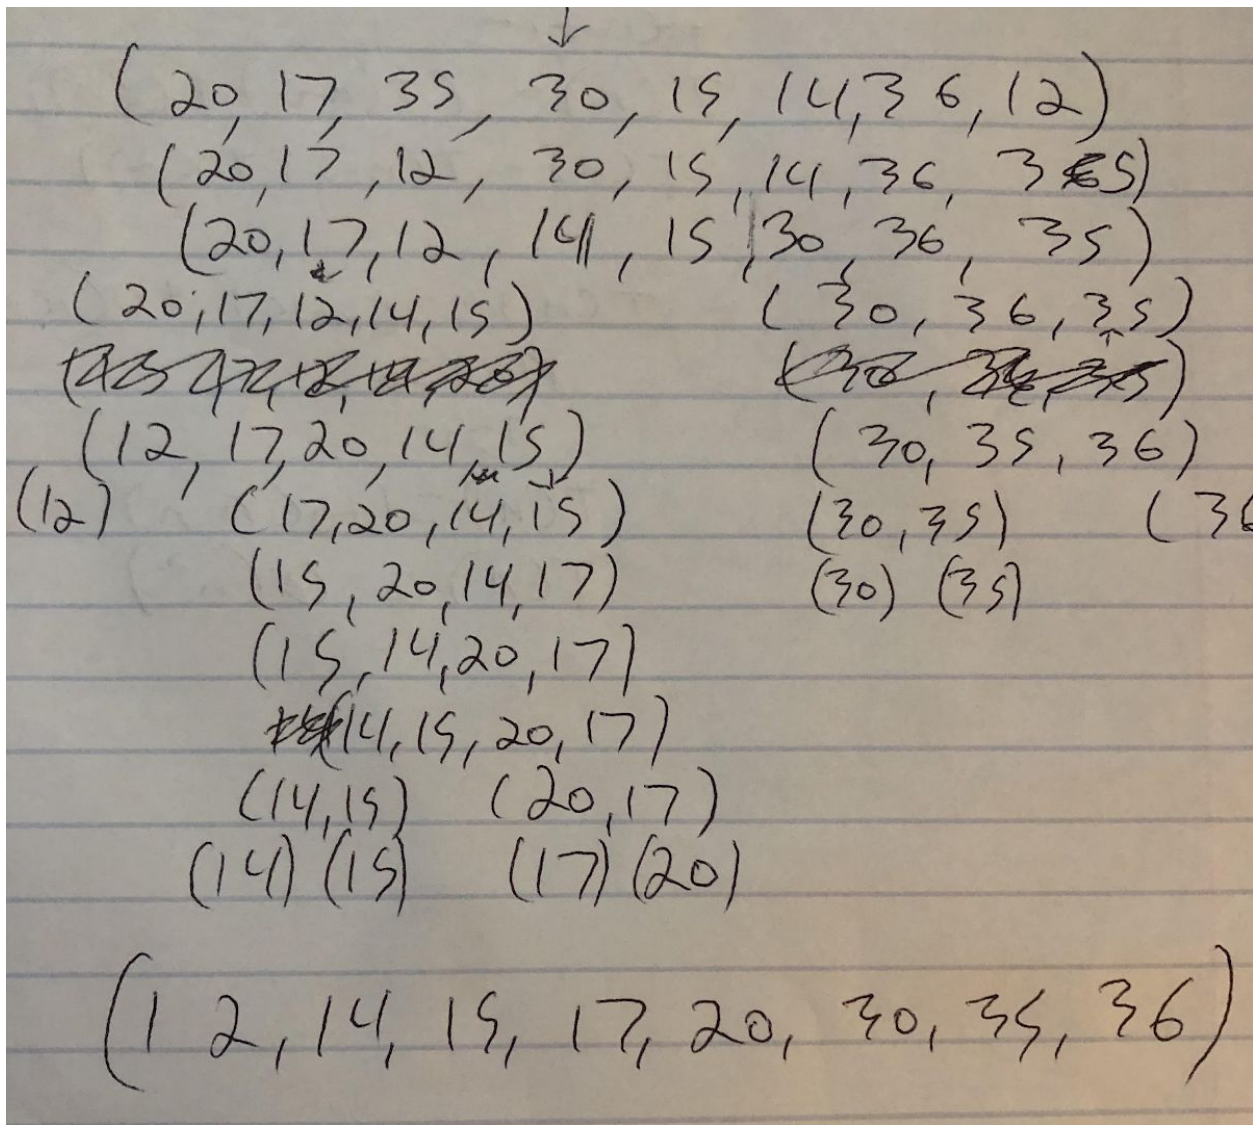 (20, 17, 35, 30, 15, 14, 36, 12)
(20, 17, 12, 30, 15, 14, 36, 35)
(20, 17, 12, 14, 15, 30, 36, 35)
(20, 17, 12, 14, 15) (30, 36, 35)
(12, 17, 20, 14, 15) (30, 35, 36)
(12) (17, 20, 14, 15) (30, 35) (36
(15, 20, 14, 17) (30) (35)
(15, 14, 20, 17)
(14, 15, 20, 17)
(14, 15) (20, 17)
(14) (15) (17) (20)
(12, 14, 15, 17, 20, 30, 35, 36)